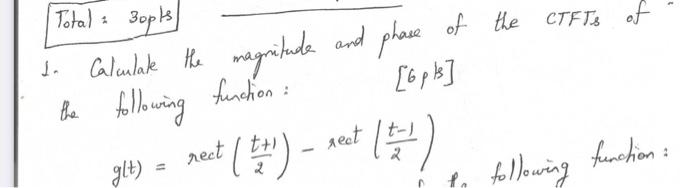 Total : 30pts
1. Calculate the magnitude and phase of the CTFTs of
the following function : [6 pts]
g(t) = rect ( t+1 / 2 ) - rect ( t-1 / 2 )
following function :